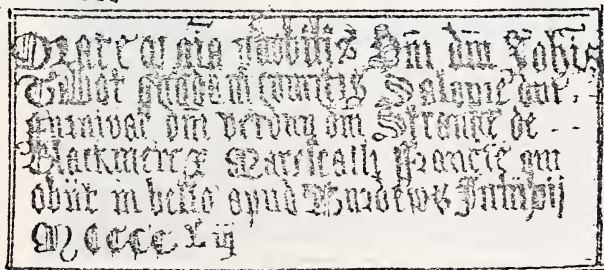 Orate p aīa pnobilis Dm̄ dm̄ Iohis
Talbot quōdam comitis Salopie dm̄ . .
Furnival dm̄ verdun dm̄ Straunge de . .
Blackmere & Marescally Francie qui
obiit in bello apud Burdews
MCCCCLij